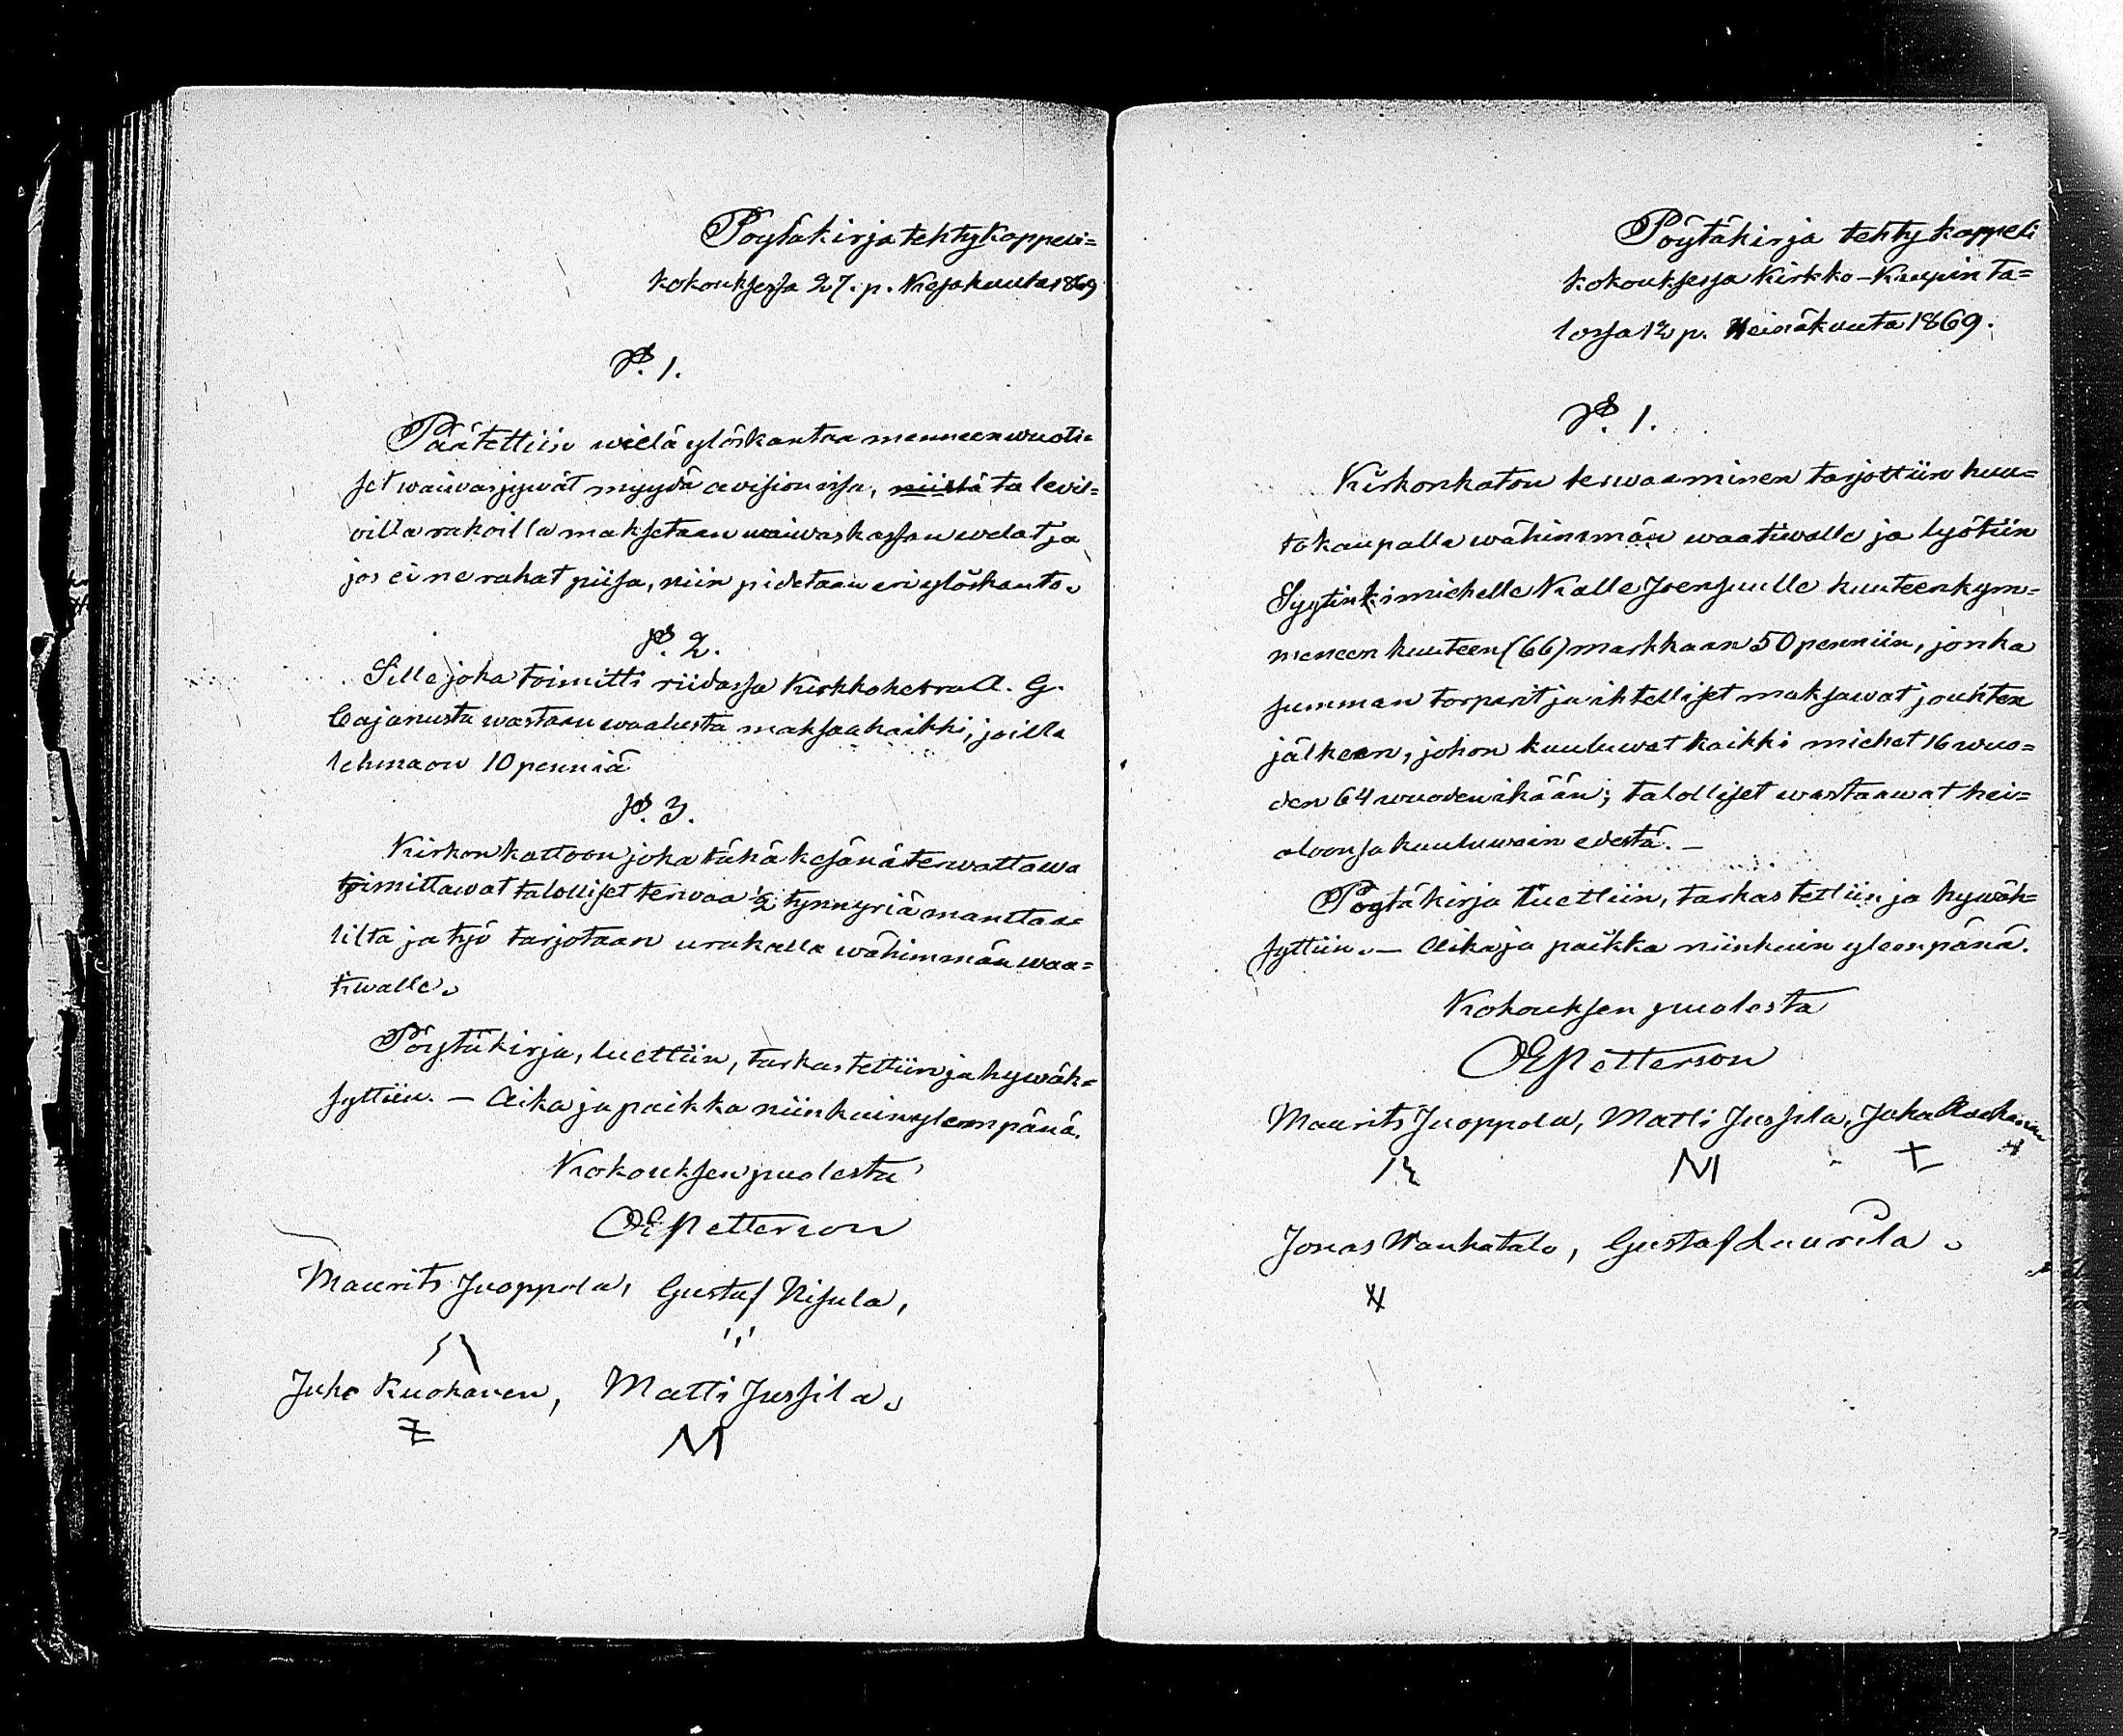 Pöytäkirja tehty Kappeli=
kokouksessa 27. p. Kesäkuuta 1869
§. 1.
Päätettiin wielä ylöskantaa menneenwuoti=
set waiwasjywät myydä avisionissa, niistä ta levis=
oilla rahoilla maksetaan waiwaskassan welat ja
jos ei ne rahat piisa, niin pidetään eri ylöskanto.
§. 2.
Sille joka toimitti riidassa Kirkkoherra A. G.
Cajanusta wastaan waalista maksaa kaikki, joilla
lehmä on 10 penniä
§. 3.
Kirkon kattoon joka tänä kesänä terwattawa
toimittawat talolliset terwaa 1/2 tynnyriä manttaa=
lilta ja työ tarjotaan urakalla wähimmän waa=
tiwalle.
Pöytäkirja, luettiin, tarkastettiin ja hywäk=
syttiin. — Aika ja paikka niinkuin yleenpänä.
Kokouksen puolesta
OEPetterson
Maurits Juoppola, Gustaf Nisula,
Juho Ruohanen, Matti Jussila.
M
Pöytäkirja tehty kappeli
kokouksessa Kirkko-Knupin ta=
lossa 12 p. Heinäkuuta 1869.
§. 1.
Kirkonkaton terwaaminen tarjottiin huu=
tokaupalla wähimmän waatiwalle ja lyötiin
Syytinkimiehelle Kalle Joensuulle kuuteenkym=
meneen kuuteen (66) markkaan 50 penniin, jonka
summan torparit ja ihtelliset maksawat
jälkeen, johon kuuluwat kaikki miehet 16 wuo=
den 64 wuoden ikään; talolliset wastaawat hei=
oloonsa kuuluwain edestä. —
Pöytäkirja luettiin, tarkastettiin ja hywäk=
syttiin. — Aika ja paikka niinkuin yleenpänä.
Kokouksen puolesta
OEPetterson
Maurits Juoppola, Matti Jussila, Juha
M
Jonas Wanhatalo, Gustaf Luurila.